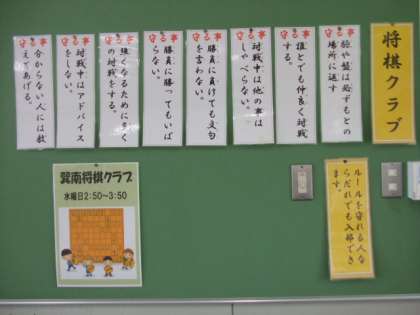 将棋クラブ
守る事
駒や盤は必ずもとの
場所に返す
守る事
誰とでも仲良く対戦
する。
守る事
対戦中は他の事は
しゃべらない。
守る事
勝負に負けても文句
を言わない。
守る事
勝負に勝ってもいば
らない。
守る事
強くなるために多く
の対戦をする。
守る事
対戦中はアドバイス
をしない。
守る事
分からない人には教
えてあげる。
ルールを守れる人な
らだれでも入部でき
ます。
巽南将棋クラブ
水曜日2:50～3:50